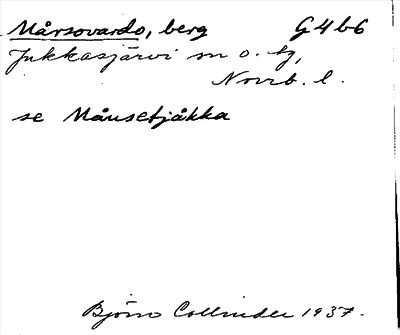 Mårsovardo, berg G4b6
Jukkasjärvi sn o. tg,
Norrb. l.
se Månsetjåkka
Björn Collinder 1937.